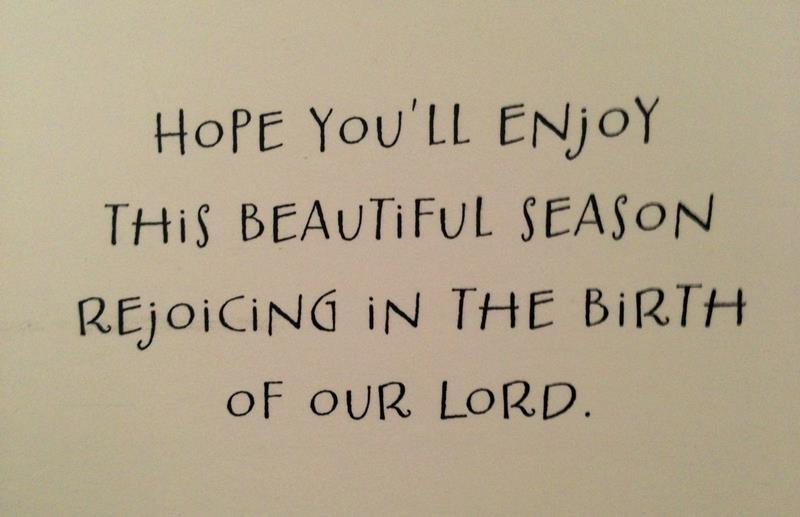 HOPE YOU'LL ENJOY
THIS BEAUTIFUL SEASON
REJOICING IN THE BIRTH
OF OUR LORD.